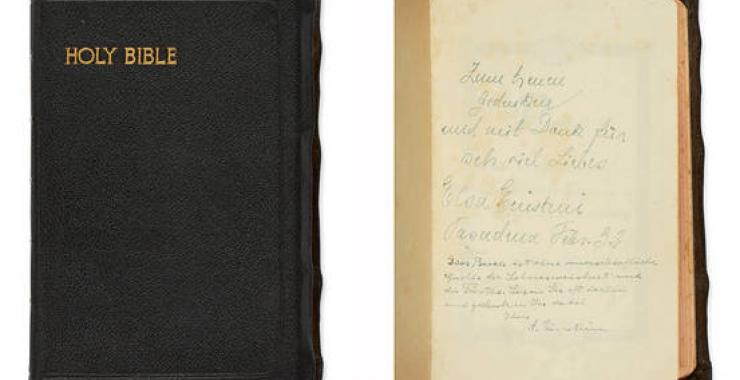 HOLY BIBLE
Zum treuen
Gedenken
und mit Dank für
sehr viel Liebes
Elsa Einstein
Pasadena Febr. 32
Dies Buch ist eine unerschöpfliche
Quelle der Lebensweisheit und
des Trostes. Lesen Sie oft darin
und gedenken Sie dabei
A. Einstein